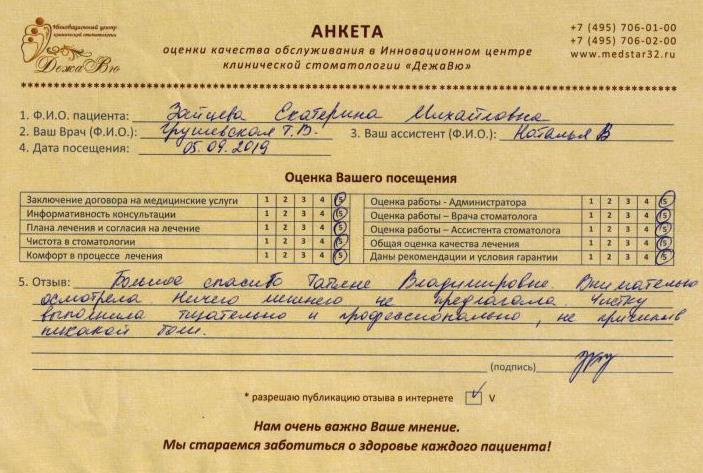 Инновационный центр
клинической стоматологии
ДежаВю
АНКЕТА
оценки качества обслуживания в Инновационном центре
клинической стоматологии «ДежаВю»
+7 (495) 706-01-00
+7 (495) 706-02-00
www.medstar32.ru
1. Ф.И.О. пациента: Зайцева Екатерина Михайловна
2. Ваш Врач (Ф.И.О.): Грушевская Т.В. 3. Ваш ассистент (Ф.И.О.): Наталья В
4. Дата посещения: 05.09.2019
Оценка Вашего посещения
Заключение договора на медицинские услуги 1 2 3 4 5
Информативность консультации 1 2 3 4 5
Плана лечения и согласия на лечение 1 2 3 4 5
Чистота в стоматологии 1 2 3 4 5
Комфорт в процессе лечения 1 2 3 4 5
Оценка работы - Администратора 1 2 3 4 5
Оценка работы – Врача стоматолога 1 2 3 4 5
Оценка работы – Ассистента стоматолога 1 2 3 4 5
Общая оценка качества лечения 1 2 3 4 5
Даны рекомендации и условия гарантии 1 2 3 4 5
5. Отзыв: Большое спасибо Татьяне Владимировне. Внимательно
осмотрела. Ничего лишнего не предлагала. Чистку
выполнила тщательно и профессионально, не причинив
никакой боли.
(подпись)
* разрешаю публикацию отзыва в интернете V
Нам очень важно Ваше мнение.
Мы стараемся заботиться о здоровье каждого пациента!